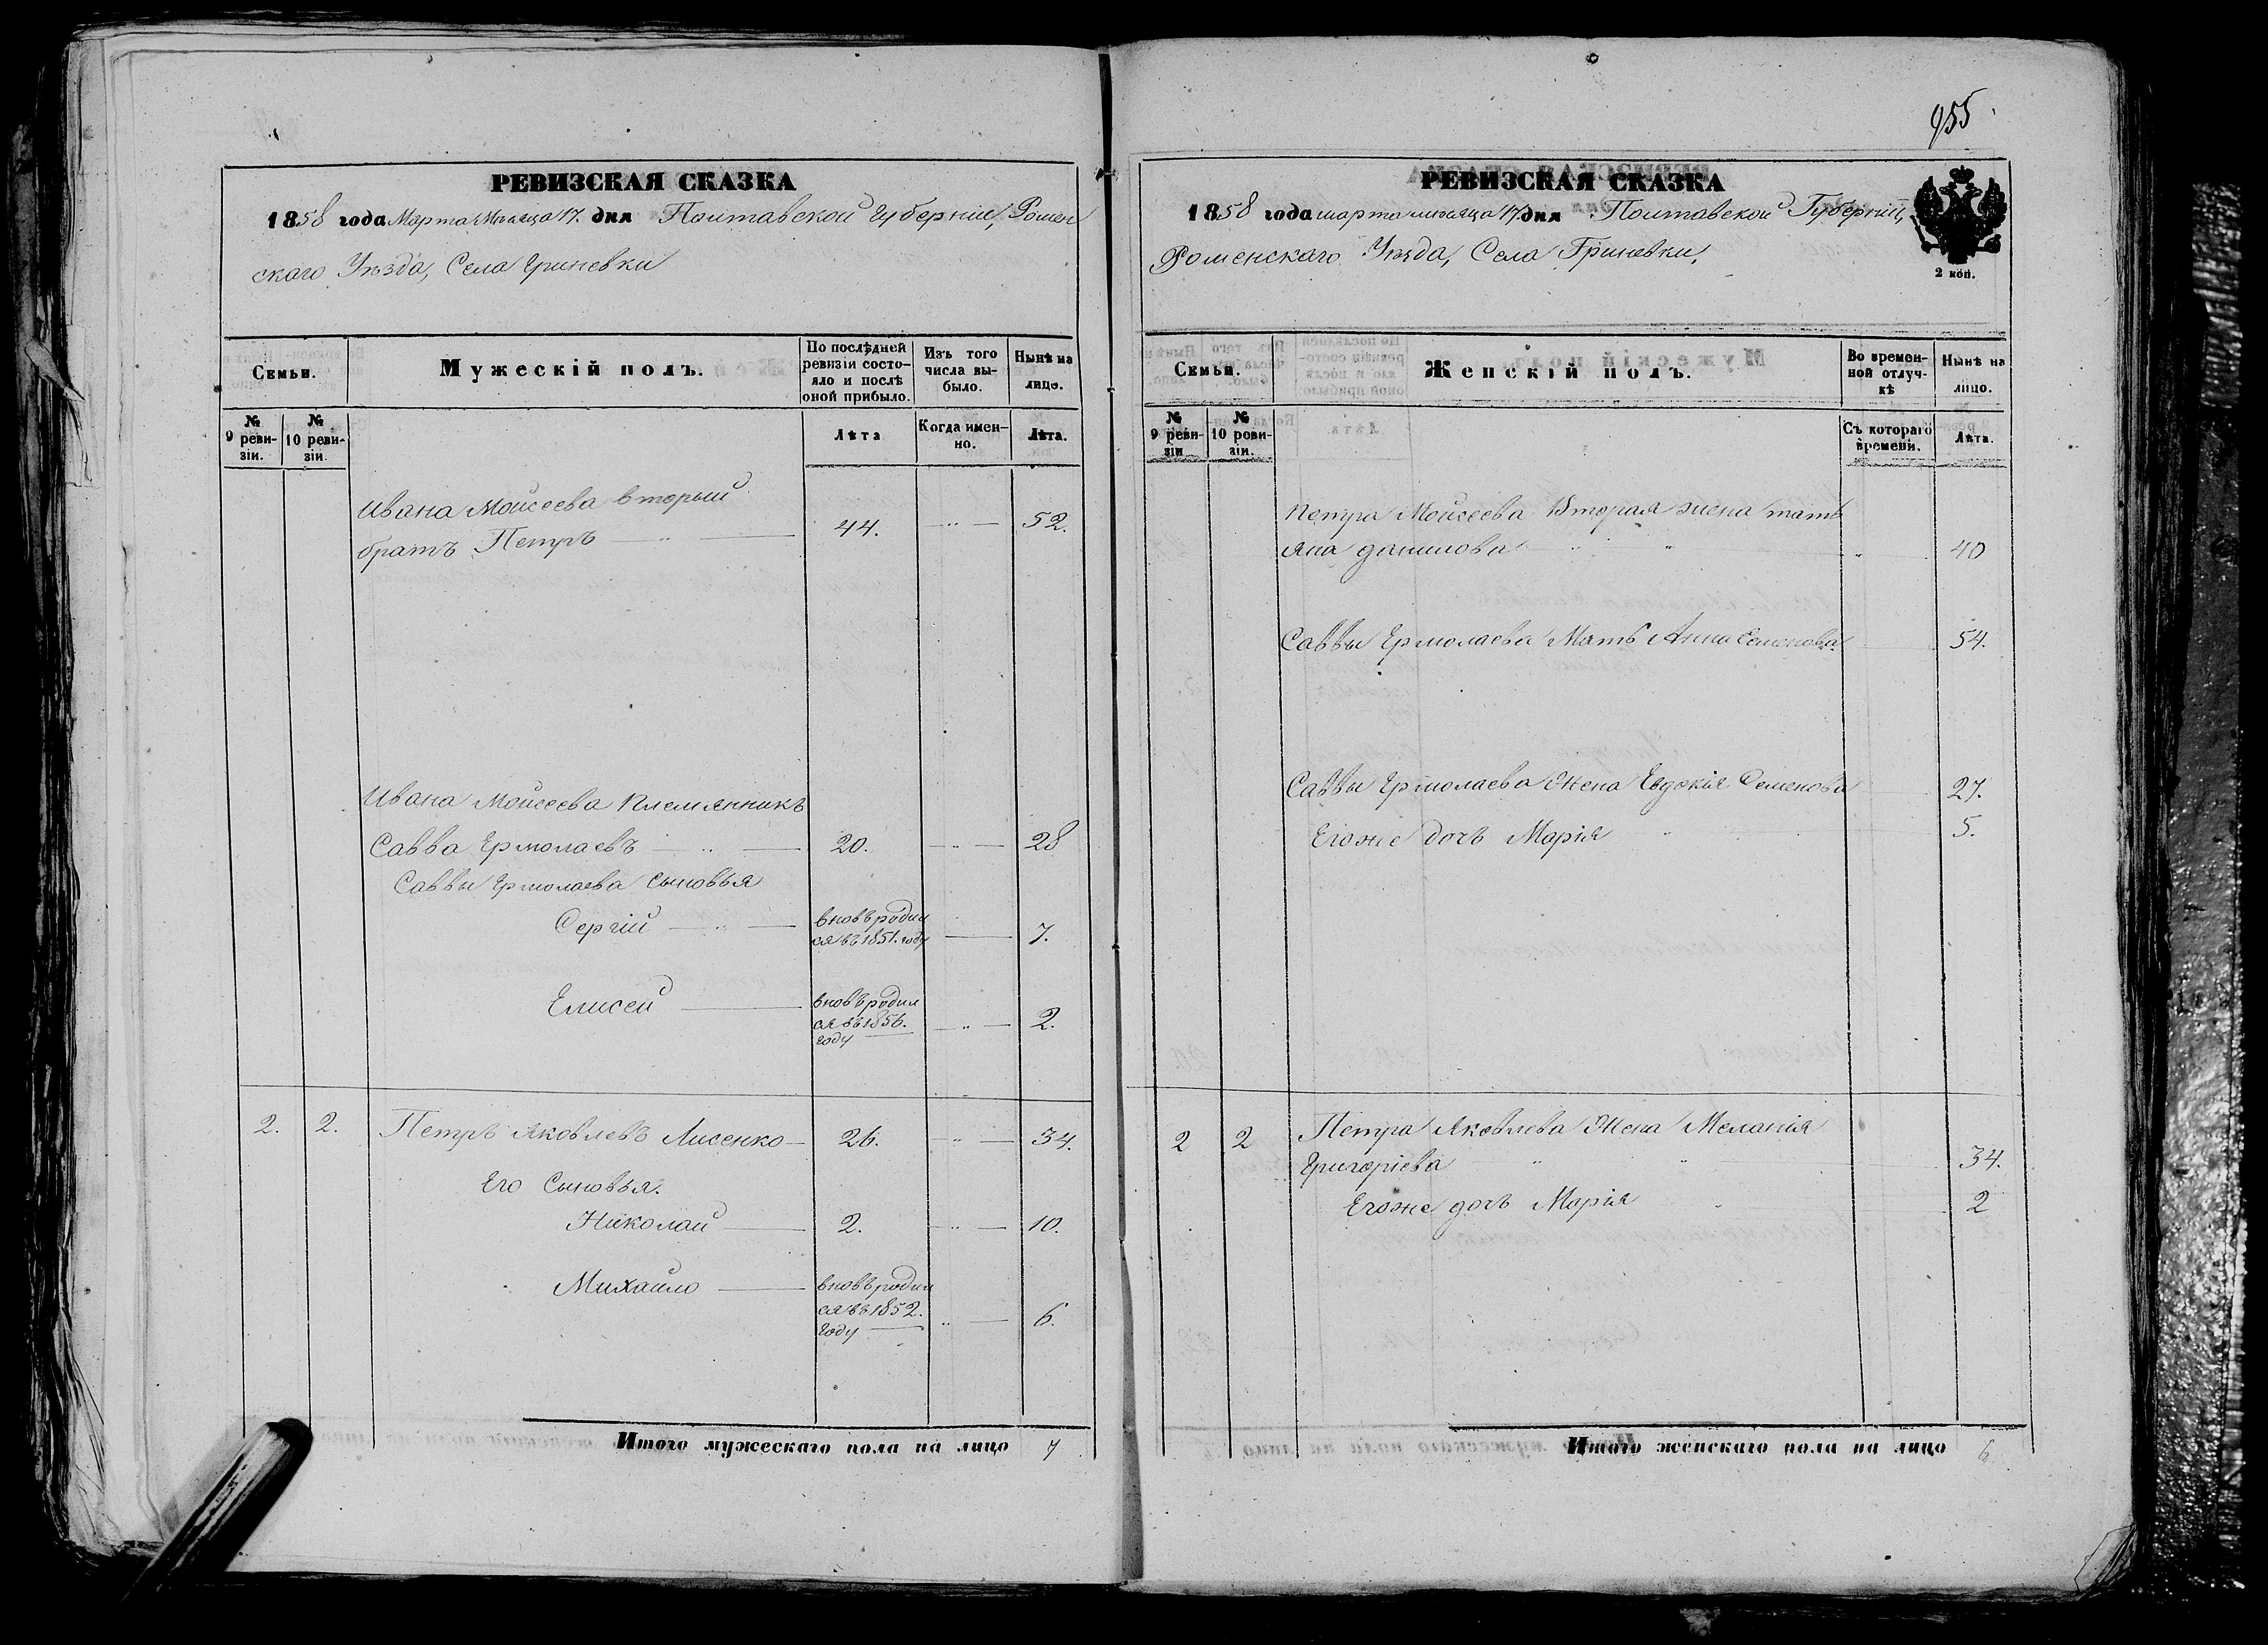 955
РЕВИЗСКАЯ СКАЗКА
1858 года Марта месяца 17. дня Полтавской Губерніи, Ромен
скаго Уѣзда, Села Гриневки
Семьи.
Мужескій полъ.
По послѣдней ревизіи состояло и послѣ оной прибыло.
Изъ того числа выбыло.
Нынѣ на лицо.
№ 9 ревизіи.
№ 10 ревизіи
Лѣта
Когда именно.
Лѣта.
Ивана Моисеева вторый
братъ Петръ 44. 52.
Ивана Моисеева племянникъ
Савва Ермолаевъ 20. 28
Саввы Ермолаева сыновья
Сергій вновь родил
ся въ 1851. году 7.
Елисей вновь родил
ся въ 1856.
году 2.
2. 2. Петръ Яковлевъ Лисенко 26. 34.
Его Сыновья.
Николай 2. 10.
Михайло вновь родил
ся въ 1852.
году 6.
Итого мужескаго пола на лицо 7
РЕВИЗСКАЯ СКАЗКА
1858 года марта месяца 17. дня Полтавской Губерніи,
Роменскаго Уѣзда, Села Гриневки,
2 коп.
Семьи.
Женскій полъ.
Во временной отлучкѣ
Нынѣ на лицо.
№ 9 ревизіи
№ 10 ревизіи.
Съ котораго времени.
Лѣта.
Петра Моисеева Вторая жена Татъ
яна данилова 40
Саввы Ермолаева Мать Анна Семенова 54.
Саввы Ермолаева Жена Евдокія Семенова 27.
Егоже дочь Марія 5.
2 2 Петра Яковлева Жена Меланія
Григоріева 34.
Егоже дочь Марія 2
Итого женскаго пола на лицо 6